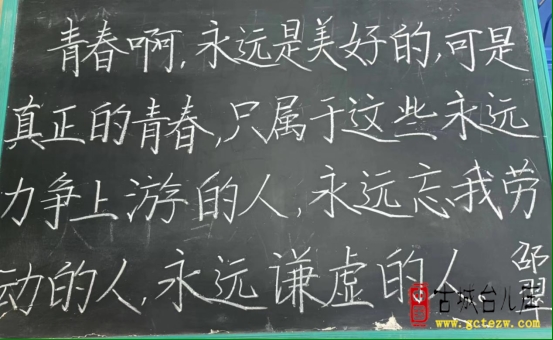 青春啊,永远是美好的,可是
真正的青春,只属于这些永远
力争上游的人,永远忘我劳
动的人,永远谦虚的人。
邵
古城台儿庄
www.gctezw.com